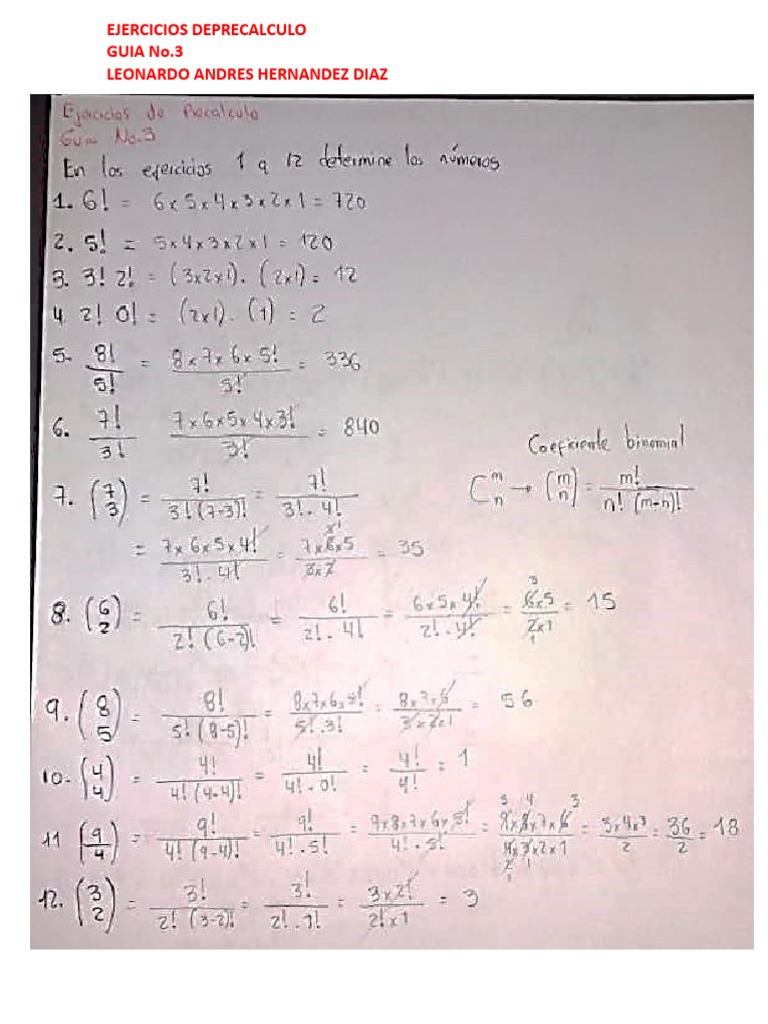 EJERCICIOS DEPRECALCULO
GUIA No.3
LEONARDO ANDRES HERNANDEZ DIAZ
Ejercicios de Precalculo
Guia No.3
En los ejercicios 1 a 12 determine los números
1. 6! = 6x5x4x3x2x1 = 720
2. 5! = 5x4x3x2x1 = 120
3. 3! 2! = (3x2x1). (2x1) = 12
4. 2! 0! = (2x1). (1) = 2
5. 8!/5! = 8x7x6x5!/5! = 336
6. 7!/3! 7x6x5x4x3!/3! = 840
Coeficiente binomial
7. (7 3) = 7!/3!(7-3)! = 7!/3!.4!
C m n → (m n) = m!/n! (m-n)!
= 7x6x5x4!/3!.4! = 7x6x5/3x2 = 35
8. (6 2) = 6!/2!(6-2)! = 6!/2!.4! = 6x5x4!/2!.4! = 6x5/2x1 = 15
9. (8 5) = 8!/5!(8-5)! = 8x7x6x5!/5!.3! = 8x7x6/3x2x1 = 56
10. (4 4) = 4!/4!(4-4)! = 4!/4!.0! = 4!/4! = 1
11 (9/4) = 9!/4!(9-4)! = 9!/4!.5! = 9x8x7x6x5!/4!.5! = 9x8x7x6/4x3x2x1 = 3x4x3/2 = 36/2 = 18
12. (3 2) = 3!/2!(3-2)! = 3!/2!.1! = 3x2!/2!x1 = 3